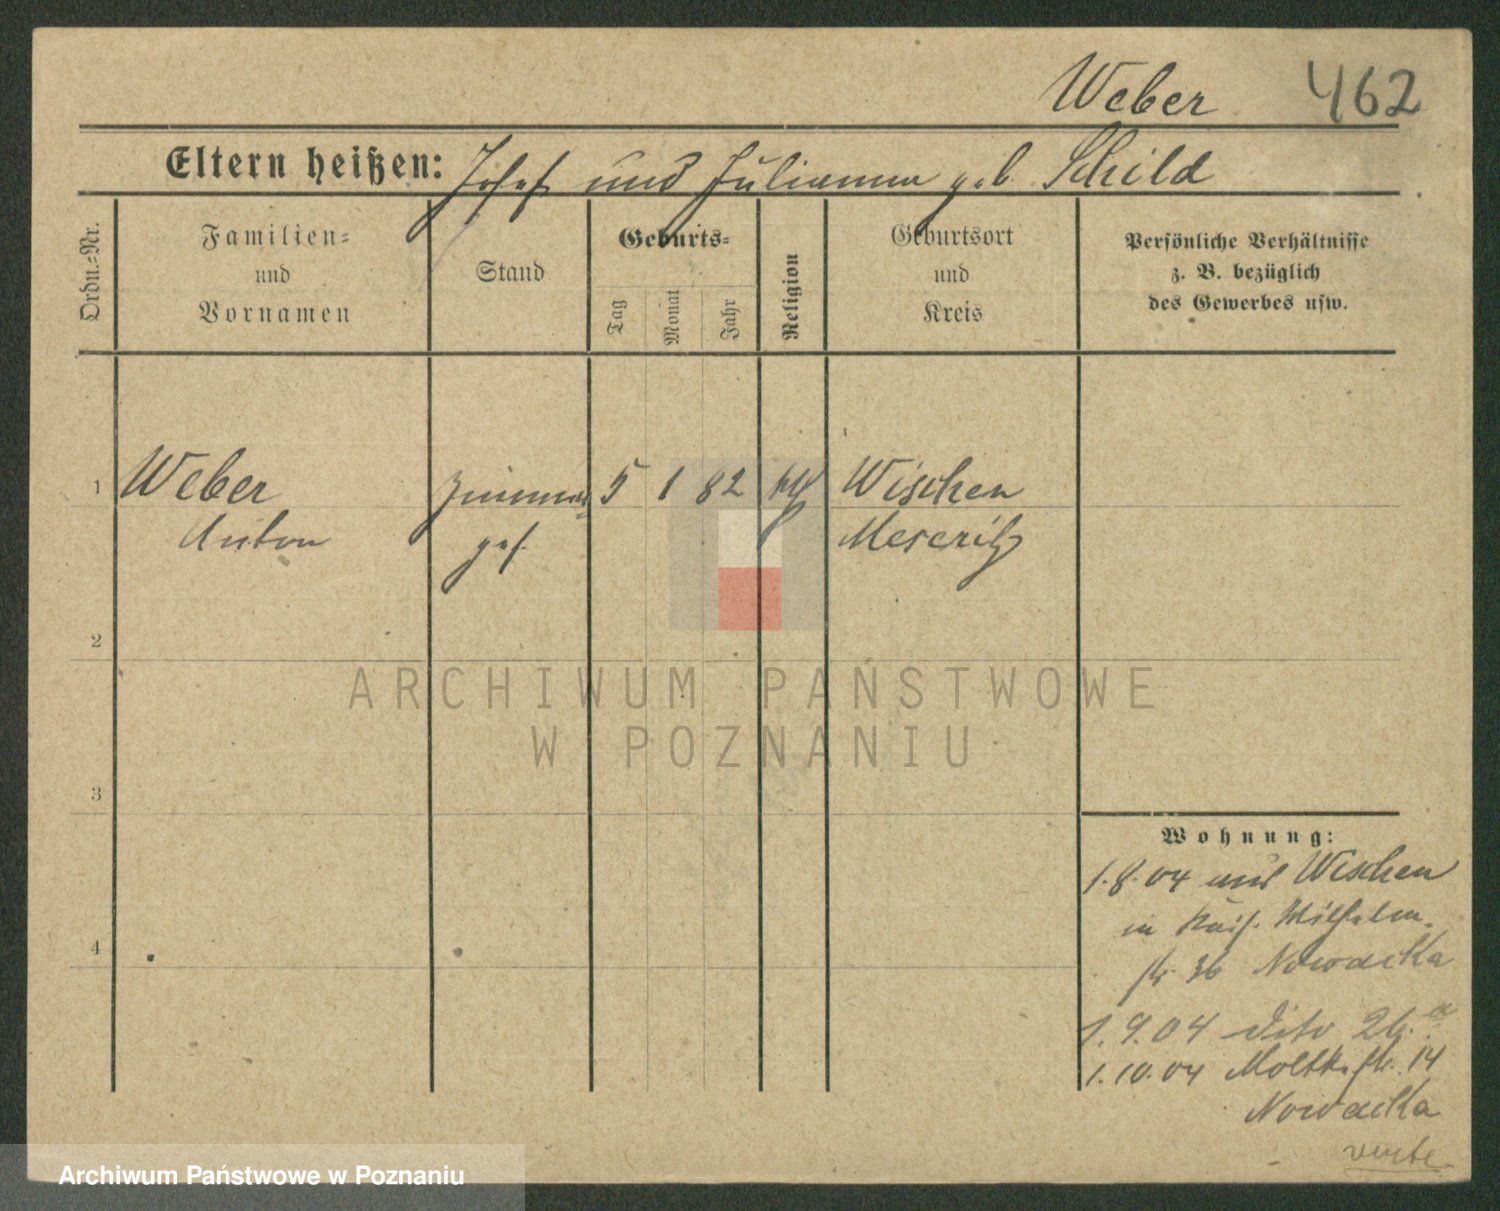 Weber 462
Eltern heißen: Josef und Julianna geb. Schild
Ordn.-Nr.
Familien-
und
Vornamen
Stand
Geburts-
Tag
Monat
Jahr
Religion
Geburtsort
und
Kreis
Persönliche Verhältnisse
z. B. bezüglich
des Gewerbes usw.
1 Weber Zimmer- 5 1 82 kth Wischen
Anton ges. Meseritz
2
3
4
ARCHIWUM PAŃSTWOWE
W POZNANIU
Wohnung:
1.8.04 aus Wischen
in Kais. Wilhelm-
str 36 Nowacka
1.9.04 dito
1.10.04 Moltkestr. 14
Nowacka
verte
Archiwum Państwowe w Poznaniu